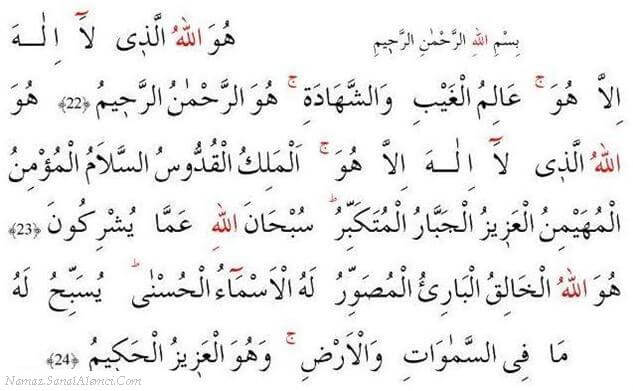 بِسْمِ اللهِ الرَّحْمٰنِ الرَّح۪يمِ هُوَ اللهُ الَّذ۪ى لَٓا اِلٰـهَ
اِلاَّ هُوَ ۚ عَالِمُ الْغَيْبِ وَالشَّهَادَةِ ۚ هُوَ الرَّحْمٰنُ الرَّح۪يمُ ﴿22﴾ هُوَ
اللهُ الَّذ۪ى لَٓا اِلٰـهَ اِلاَّ هُوَ ۚ اَلْمَلِكُ الْقُدُّوسُ السَّلَامُ الْمُؤْمِنُ
الْمُهَيْمِنُ الْعَز۪يزُ الْجَبَّارُ الْمُتَكَبِّرُ ۜ سُبْحَانَ اللهِ عَمَّا يُشْرِكُونَ ﴿23﴾
هُوَ اللهُ الْخَالِقُ الْبَارِئُ الْمُصَوِّرُ لَهُ الْاَسْمَٓاءُ الْحُسْنٰى ۜ يُسَبِّحُ لَهُ
مَا فِى السَّمٰوَاتِ وَالْاَرْضِ ۚ وَهُوَ الْعَز۪يزُ الْحَك۪يمُ ﴿24﴾
Namaz.SanalAlemci.Com